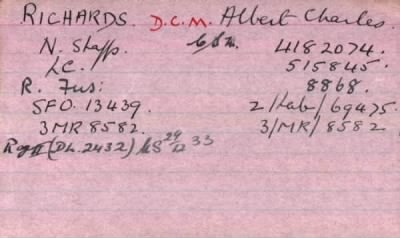 RICHARDS. D.C.M. Albert Charles.
N. Staffs. 4182074.
L.C. 515845.
R. Fus: 8868.
SFO. 13439. 2/Lab/69475.
3MR 8582. 3/MR/8582
(DL.2432) 29/12 33